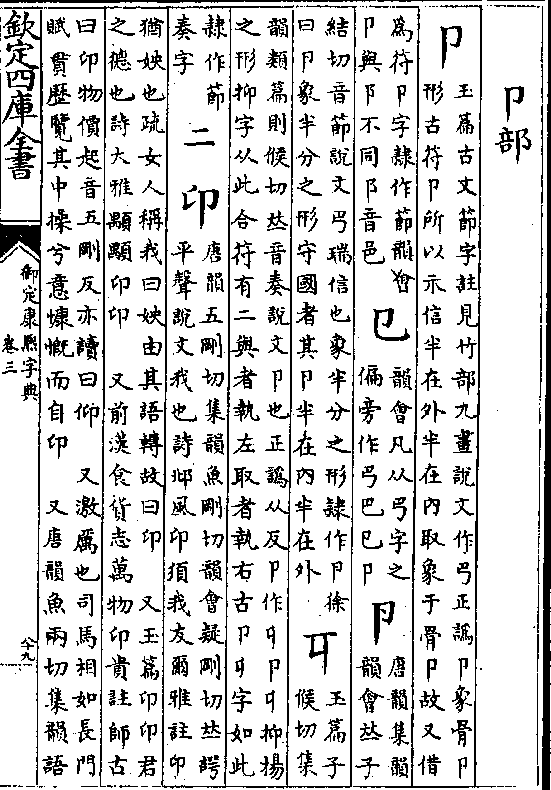 卩部
卩
玉篇古文節字註見竹部九畫說文作㔾正譌卩象骨卩
形古符卩所以示信半在外半在內取象于骨卩故又借
爲符卩字隷作節韻會
卩與阝不同阝音邑
㔾
韻會凡从㔾字之
偏旁作㔾巴巳卩
卪
唐韻集韻
韻會𠀤子
結切音節說文㔾瑞信也象半分之形隷作卩徐
曰卩象半分之形守國者其卩半在內半在外
𠨎
玉篇子
候切集
韻類篇則候切𠀤音奏說文卩也正譌从反卩作𠨎卩𠨎抑揚
之形抑字从此合符有二與者執左取者執右古卩𠨎字如此
隷作節
奏字
二
卬
唐韻五剛切集韻魚剛切韻會疑剛切𠀤諤
平聲說文我也詩邶風卬須我友爾雅註卬
猶姎也疏女人稱我曰姎由其語轉故曰卬 又玉篇卬卬君
之德也詩大雅顒顒卬卬 又前漢食貨志萬物卬貴註師古
曰卬物價起音五剛反亦讀曰仰 又激厲也司馬相如長門
賦貫歷覽其中操兮意慷慨而自卬 又唐韻魚兩切集韻語
欽定四庫全書
御定康熙字典
卷三
八十九